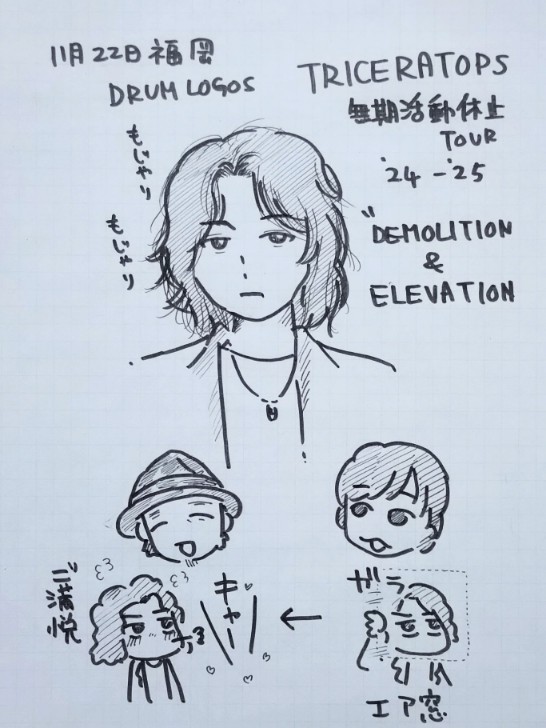 11月22日福岡
DRUM LOGOS
TRICERATOPS
無期活動休止
TOUR
'24-'25
"DEMOLITION
&
ELEVATION
もじゃり
もじゃり
ご満悦
キャー
ガラ
エア窓